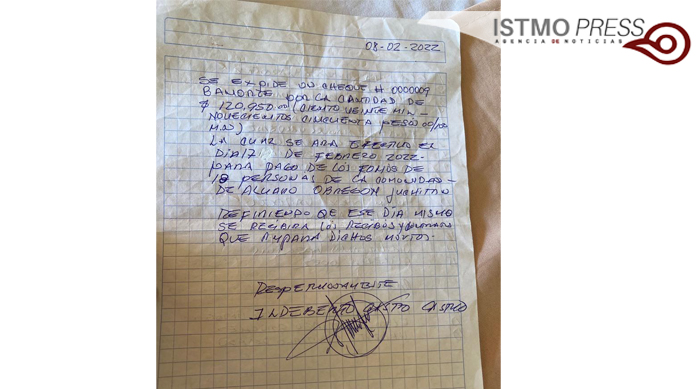 ISTMO PRESS
AGENCIA DE NOTICIAS
08-02-2022
SE EXPIDE UN CHEQUE # 0000009
BANORTE POR LA CANTIDAD DE
$ 120,950.00 (CIENTO VEINTE MIL -
NOVECIENTOS CINCUENTA PESOS 00/100
M.N)
LA CUAL SE ARA EFECTIVO EL
DIA 17 DE FEBRERO 2022.
PARA PAGO DE LOS FOLIOS DE
18 PERSONAS DE LA COMUNIDAD -
DE ALVARO OBREGON JUCHITAN
DEFINIENDO QUE ESE DÍA MISMO
SE RECIBIRA LOS RECIBOS Y
QUE AMPARA DICHOS MONTOS.
RESPETUOSAMENTE
INDEBERTO CASTRO CASTRO